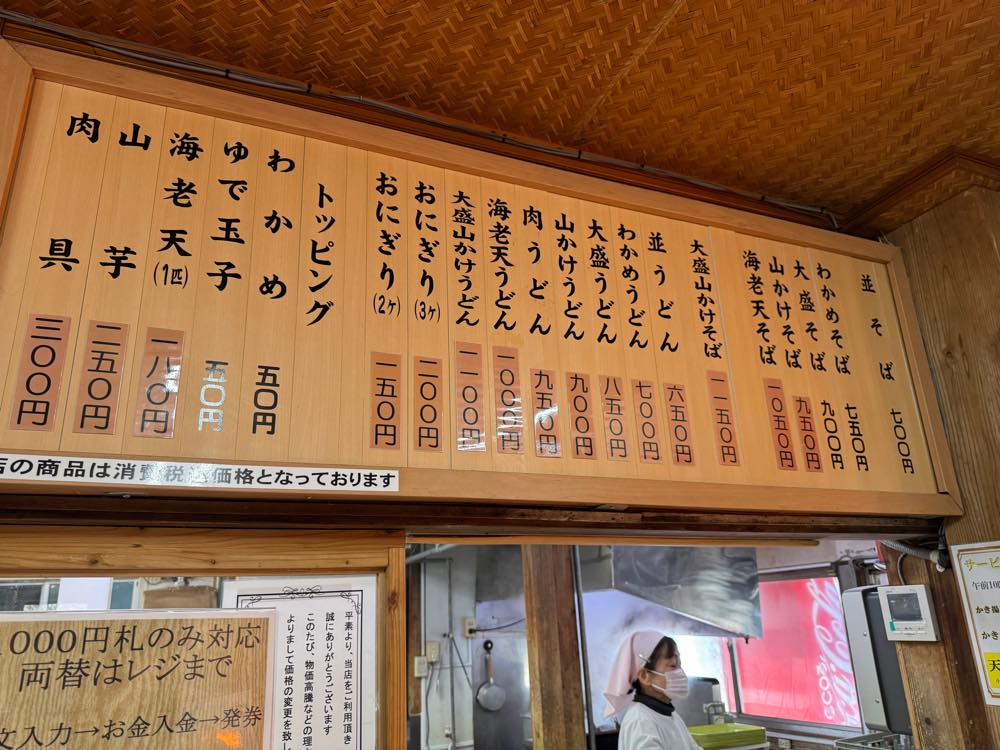 並そば 七〇〇円
わかめそば 七五〇円
大盛そば 九〇〇円
山かけそば 九五〇円
海老天そば 一〇五〇円
大盛山かけそば 一一五〇円
並うどん 六五〇円
わかめうどん 七〇〇円
大盛うどん 八五〇円
山かけうどん 九〇〇円
肉うどん 九五〇円
海老天うどん 一〇〇〇円
大盛山かけうどん 一一〇〇円
おにぎり(3ヶ) 二〇〇円
おにぎり(2ヶ) 一五〇円
トッピング
わかめ 五〇円
ゆで玉子 五〇円
海老天(1匹) 一八〇円
山芋 二五〇円
肉具 三〇〇円
店の商品は消費税込価格となっております
000円札のみ対応
両替はレジまで
文入力→お金入金→発券
平素より、当店をご利用頂き
誠にありがとうございます
このたび、物価高騰などの理
よりまして価格の変更を致し
サービ
午前10
かき揚
かき
天